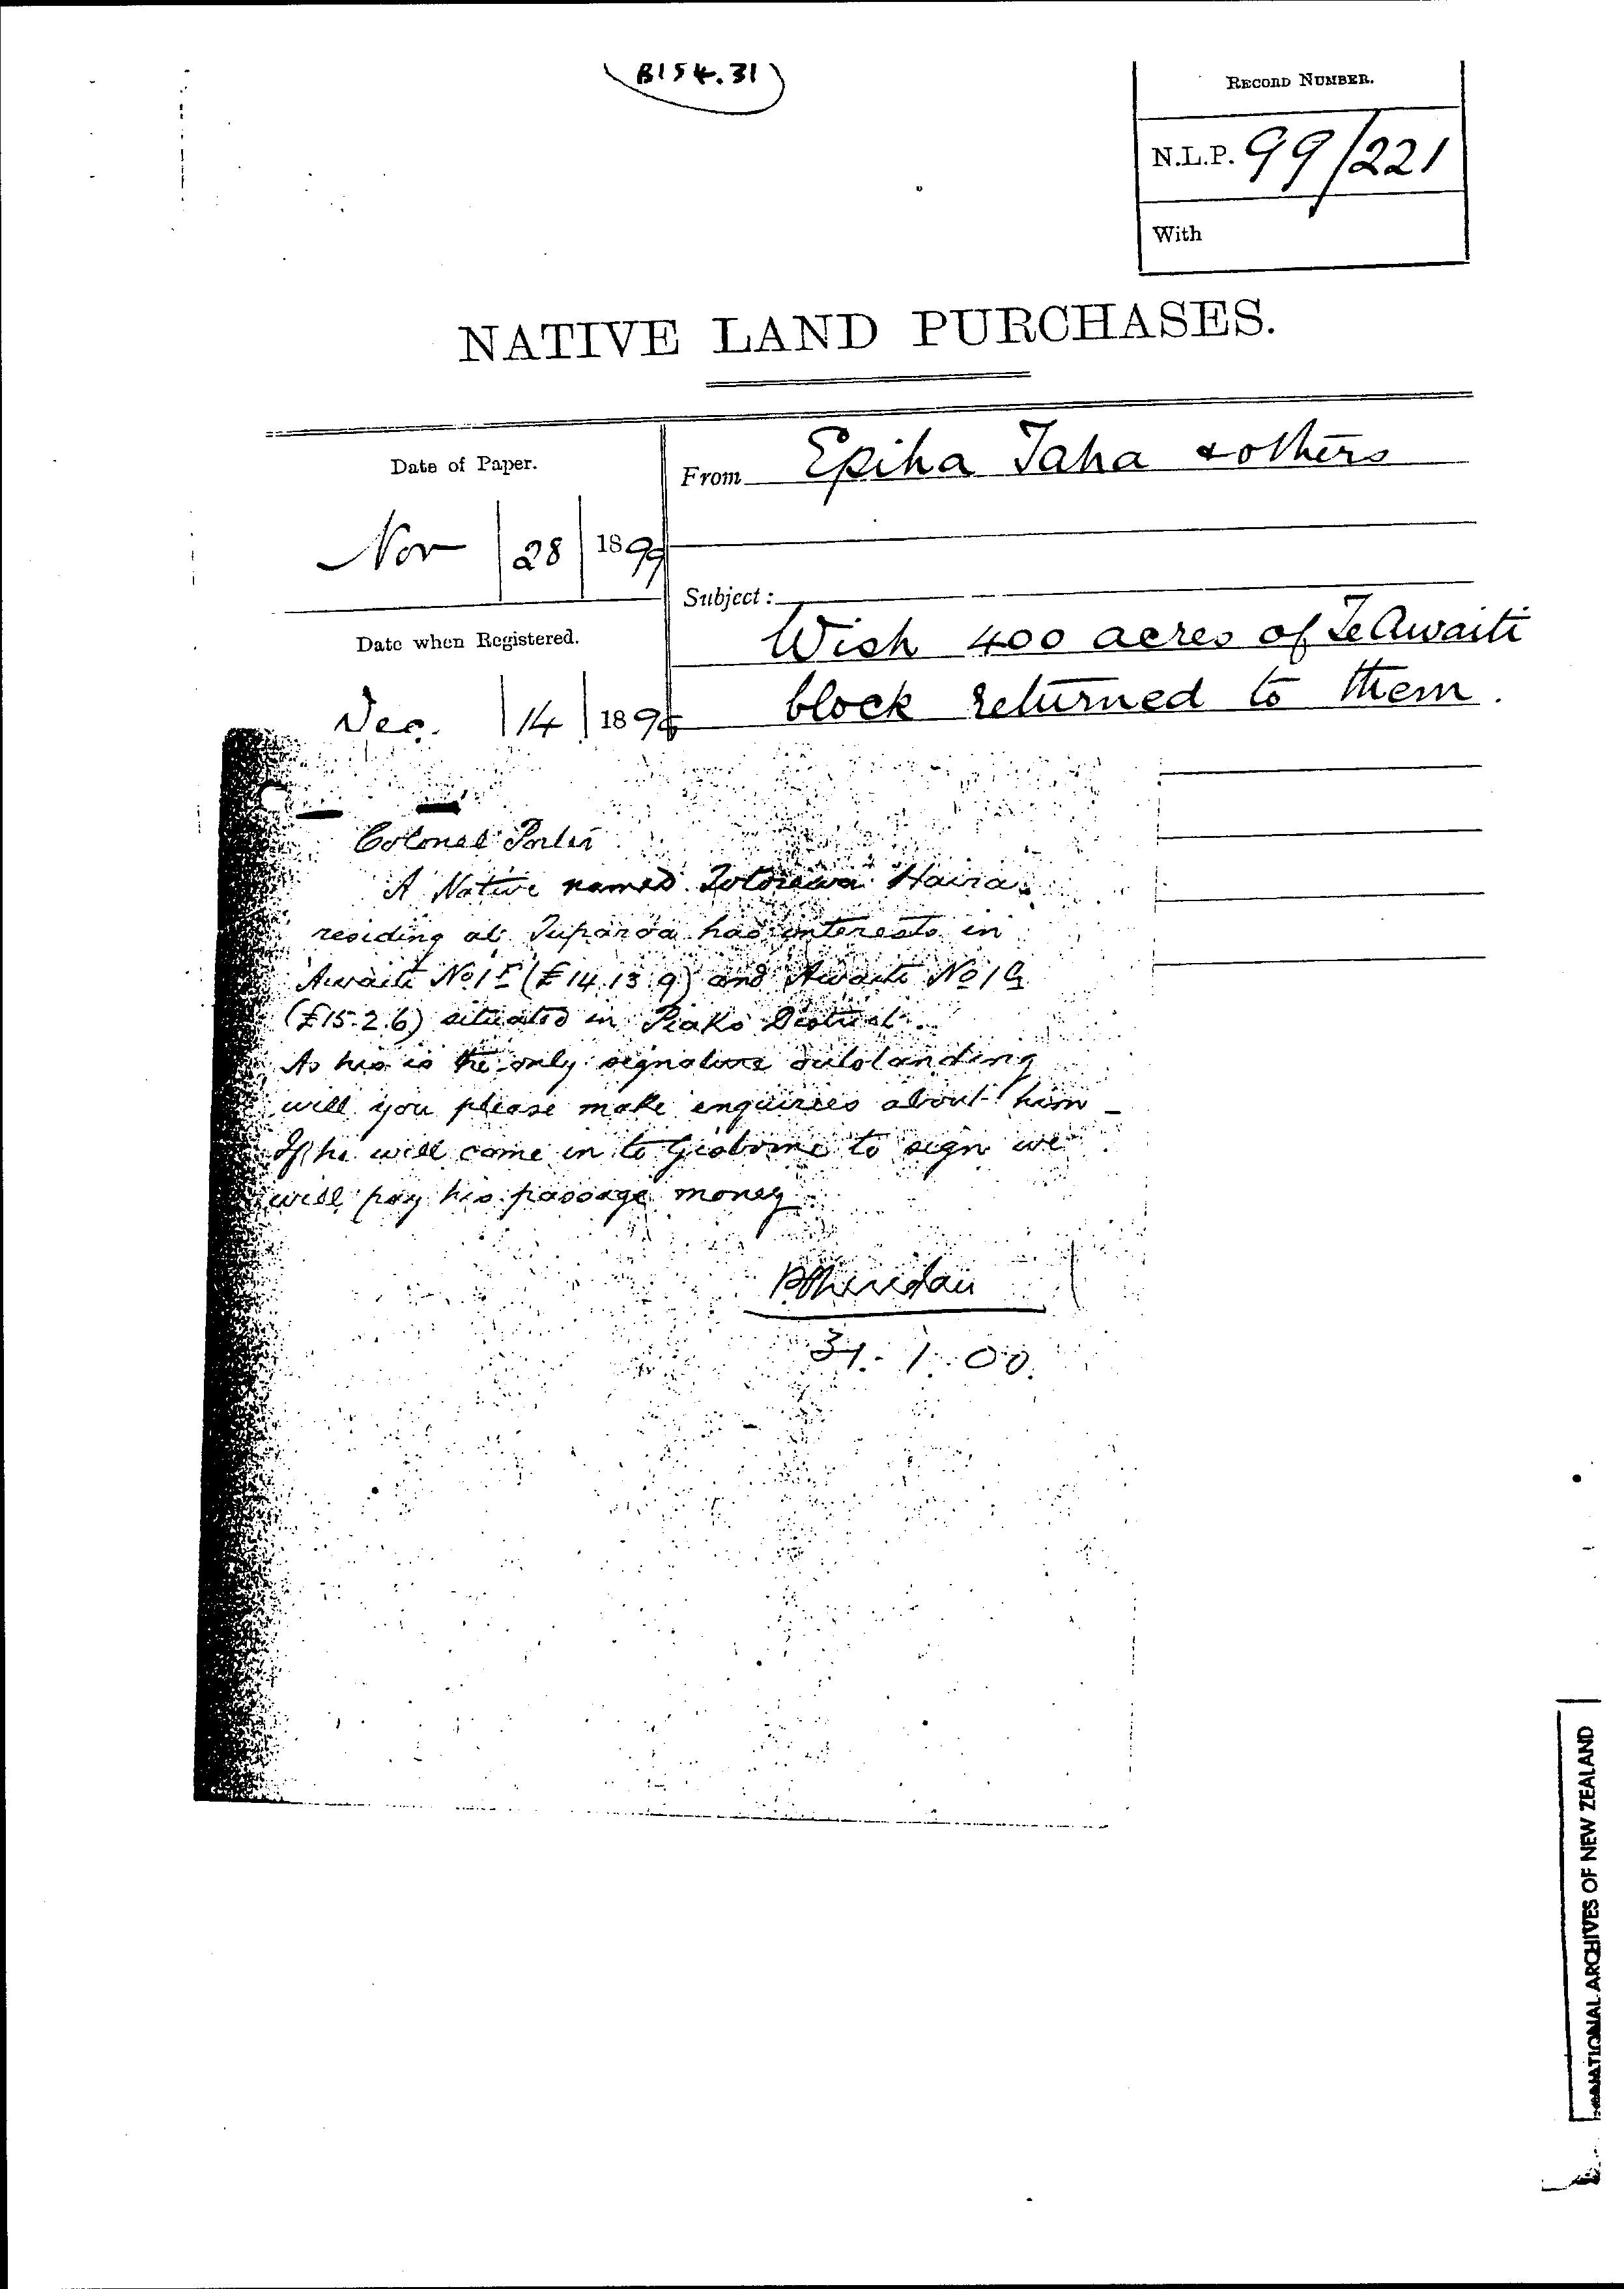 B154.31
RECORD NUMBER.
N.L.P. 99/221
With
NATIVE LAND PURCHASES.
Date of Paper.
Nov 28 1899
Date when Registered.
Dec. 14 189
From Epiha Taha & others
Subject:
Wish 400 acres of Te Awaiti
block returned to them.
Colonel Porter
A Native named Haira
residing at Tuparoa has interests in
Awaiti No 1 F (£14.13.9) and Awaiti No 1 G
(£15.2.6) situated in Piako District.
As his is the only signature outstanding
will you please make enquiries about him
If he will come in to Gisborne to sign we
will pay his passage money
P Sheridan
31.1.00.
NATIONAL ARCHIVES OF NEW ZEALAND